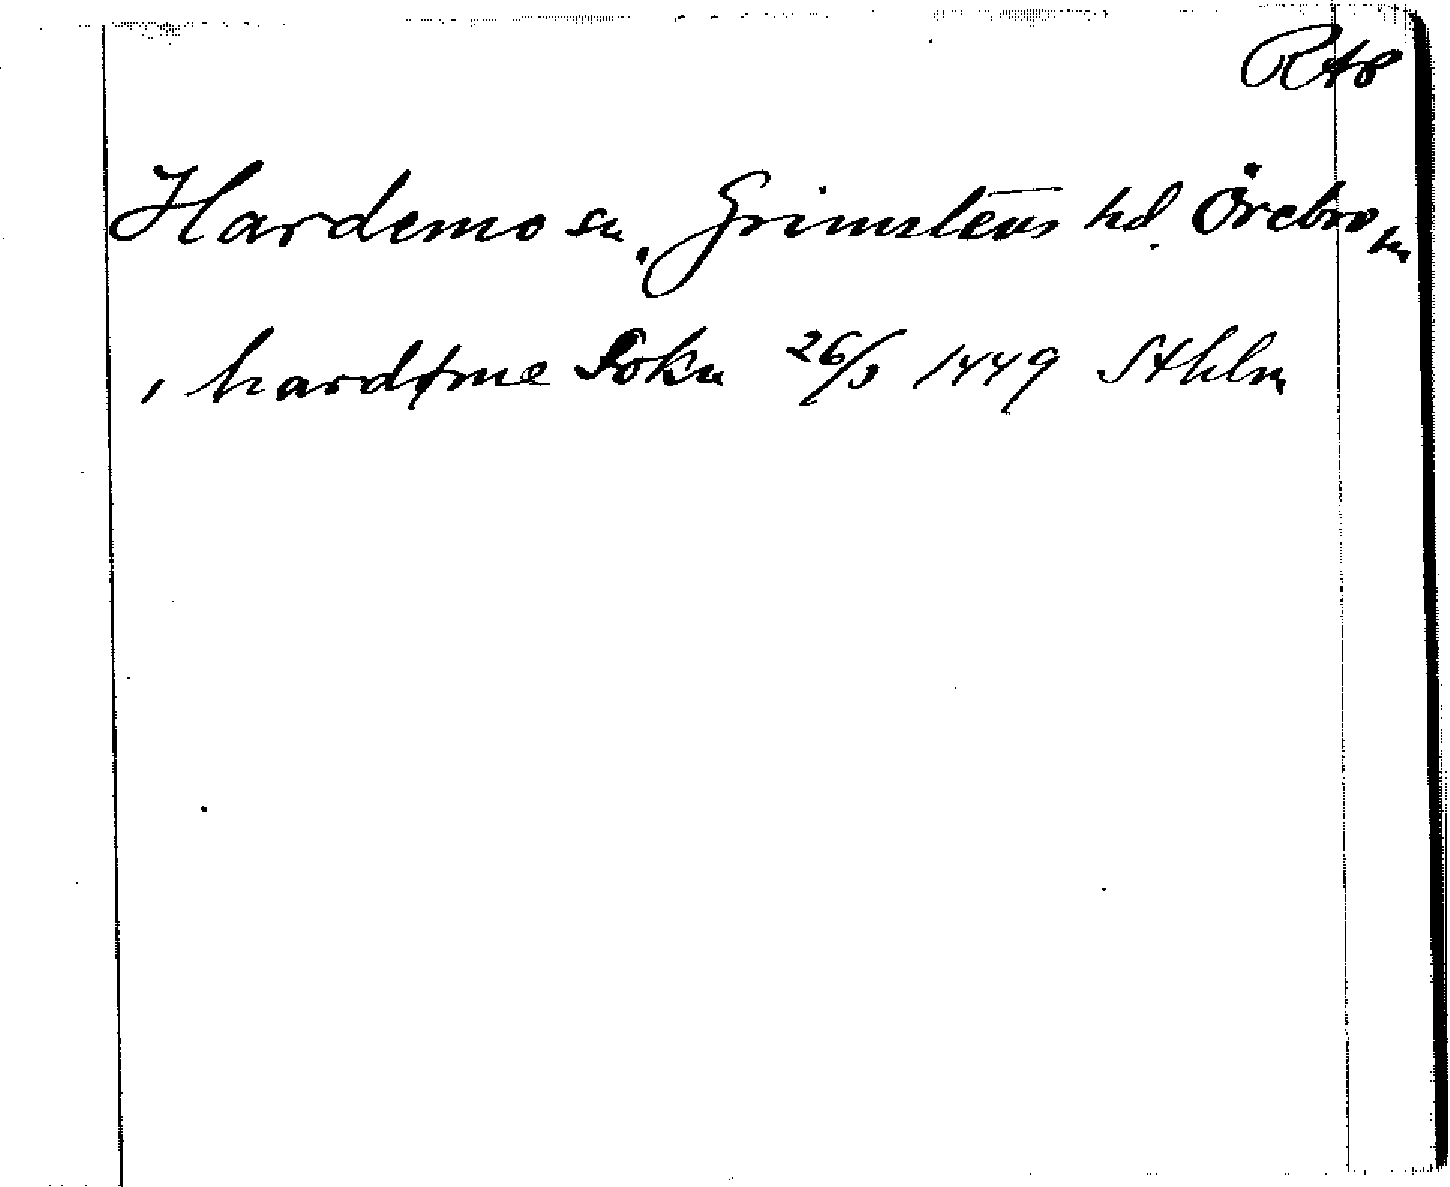 RAP
Hardemo sn, Grimstens hd. Örebro ln
i hardφme Sokn 26/3 1449 Sthlm